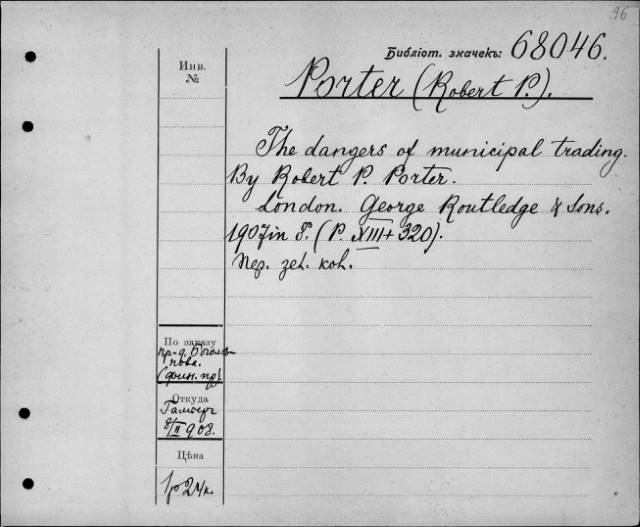 96
Библіот. значекъ: 68046.
Инв.
№
Porter (Robert P.).
The dangers of municipal trading.
By Robert P. Porter.
London. George Routledge & Sons.
1907 in 8. (P. XIII + 320).
Пер. зел. кол.
По заказу
пр-д. Боголѣ-
пова.
(фин. пр.)
Откуда
8/II 908.
Цѣна
1р 24к.